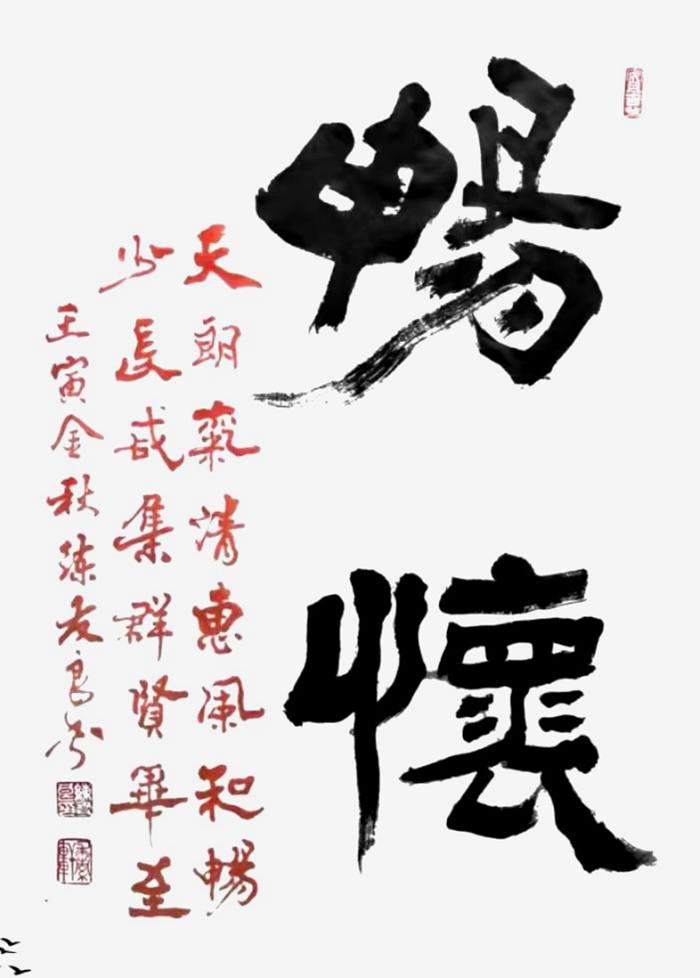 暢懷
天朗氣清惠風和暢
少長咸集群賢畢至
壬寅金秋练友良书